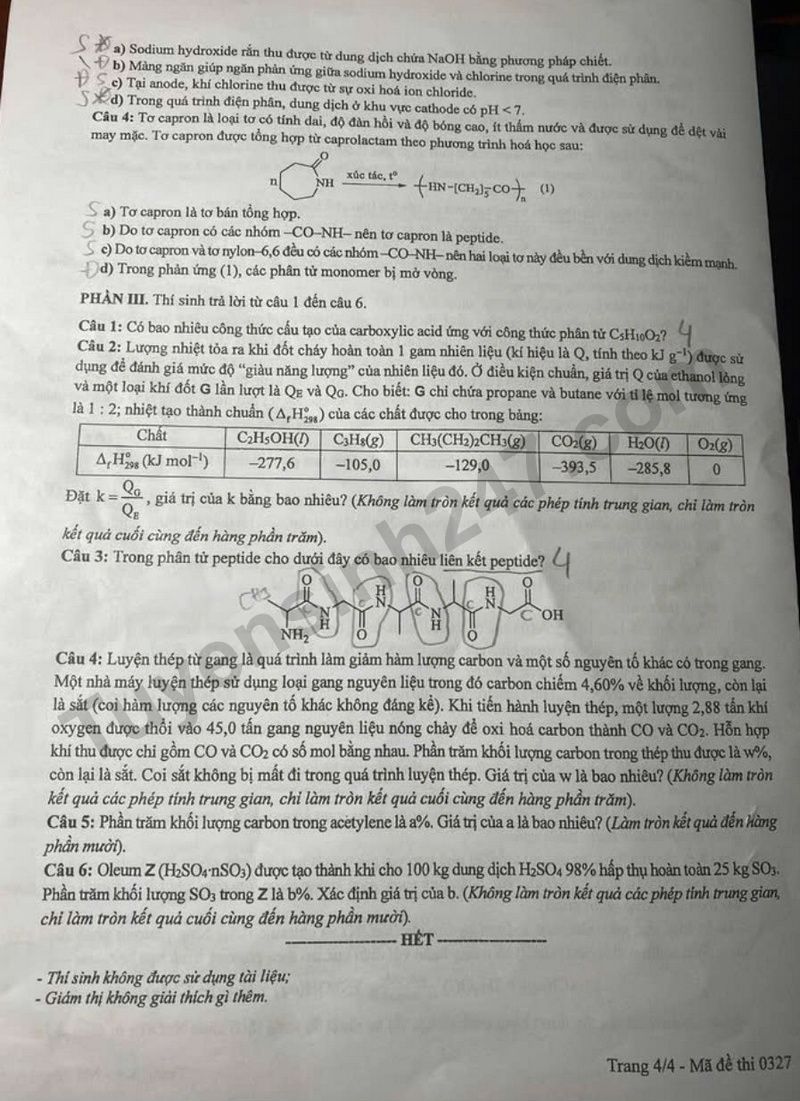 S Đ a) Sodium hydroxide rắn thu được từ dung dịch chứa NaOH bằng phương pháp chiết.
Đ b) Màng ngăn giúp ngăn phản ứng giữa sodium hydroxide và chlorine trong quá trình điện phân.
Đ S c) Tại anode, khí chlorine thu được từ sự oxi hoá ion chloride.
S d) Trong quá trình điện phân, dung dịch ở khu vực cathode có pH < 7.
Câu 4: Tơ capron là loại tơ có tính dai, độ đàn hồi và độ bóng cao, ít thấm nước và được sử dụng để dệt vải
may mặc. Tơ capron được tổng hợp từ caprolactam theo phương trình hoá học sau:
n O NH xúc tác, tº (HN–[CH₂]₅–CO)n (1)
S a) Tơ capron là tơ bán tổng hợp.
S b) Do tơ capron có các nhóm –CO–NH– nên tơ capron là peptide.
S c) Do tơ capron và tơ nylon–6,6 đều có các nhóm –CO–NH– nên hai loại tơ này đều bền với dung dịch kiềm mạnh.
Đ d) Trong phản ứng (1), các phân tử monomer bị mở vòng.
PHẦN III. Thí sinh trả lời từ câu 1 đến câu 6.
Câu 1: Có bao nhiêu công thức cấu tạo của carboxylic acid ứng với công thức phân tử C₅H₁₀O₂? 4
Câu 2: Lượng nhiệt tỏa ra khi đốt cháy hoàn toàn 1 gam nhiên liệu (kí hiệu là Q, tính theo kJ g⁻¹) được sử
dụng để đánh giá mức độ “giàu năng lượng” của nhiên liệu đó. Ở điều kiện chuẩn, giá trị Q của ethanol lỏng
và một loại khí đốt G lần lượt là Q_E và Q_G. Cho biết: G chỉ chứa propane và butane với tỉ lệ mol tương ứng
là 1 : 2; nhiệt tạo thành chuẩn (Δ_fH°₂₉₈) của các chất được cho trong bảng:
Chất C₂H₅OH(l) C₃H₈(g) CH₃(CH₂)₂CH₃(g) CO₂(g) H₂O(l) O₂(g)
Δ_fH°₂₉₈ (kJ mol⁻¹) –277,6 –105,0 –129,0 –393,5 –285,8 0
Đặt k = Q_G/Q_E, giá trị của k bằng bao nhiêu? (Không làm tròn kết quả các phép tính trung gian, chỉ làm tròn
kết quả cuối cùng đến hàng phần trăm).
Câu 3: Trong phân tử peptide cho dưới đây có bao nhiêu liên kết peptide? 4
CH3 O H O H O
C N C N C OH
NH₂ N H O N H O
Câu 4: Luyện thép từ gang là quá trình làm giảm hàm lượng carbon và một số nguyên tố khác có trong gang.
Một nhà máy luyện thép sử dụng loại gang nguyên liệu trong đó carbon chiếm 4,60% về khối lượng, còn lại
là sắt (coi hàm lượng các nguyên tố khác không đáng kể). Khi tiến hành luyện thép, một lượng 2,88 tấn khí
oxygen được thổi vào 45,0 tấn gang nguyên liệu nóng chảy để oxi hoá carbon thành CO và CO₂. Hỗn hợp
khí thu được chỉ gồm CO và CO₂ có số mol bằng nhau. Phần trăm khối lượng carbon trong thép thu được là w%,
còn lại là sắt. Coi sắt không bị mất đi trong quá trình luyện thép. Giá trị của w là bao nhiêu? (Không làm tròn
kết quả các phép tính trung gian, chỉ làm tròn kết quả cuối cùng đến hàng phần trăm).
Câu 5: Phần trăm khối lượng carbon trong acetylene là a%. Giá trị của a là bao nhiêu? (Làm tròn kết quả đến hàng
phần mười).
Câu 6: Oleum Z (H₂SO₄·nSO₃) được tạo thành khi cho 100 kg dung dịch H₂SO₄ 98% hấp thụ hoàn toàn 25 kg SO₃.
Phần trăm khối lượng SO₃ trong Z là b%. Xác định giá trị của b. (Không làm tròn kết quả các phép tính trung gian,
chỉ làm tròn kết quả cuối cùng đến hàng phần mười).
HẾT
- Thí sinh không được sử dụng tài liệu;
- Giám thị không giải thích gì thêm.
Trang 4/4 - Mã đề thi 0327
Tuyensinh247.com